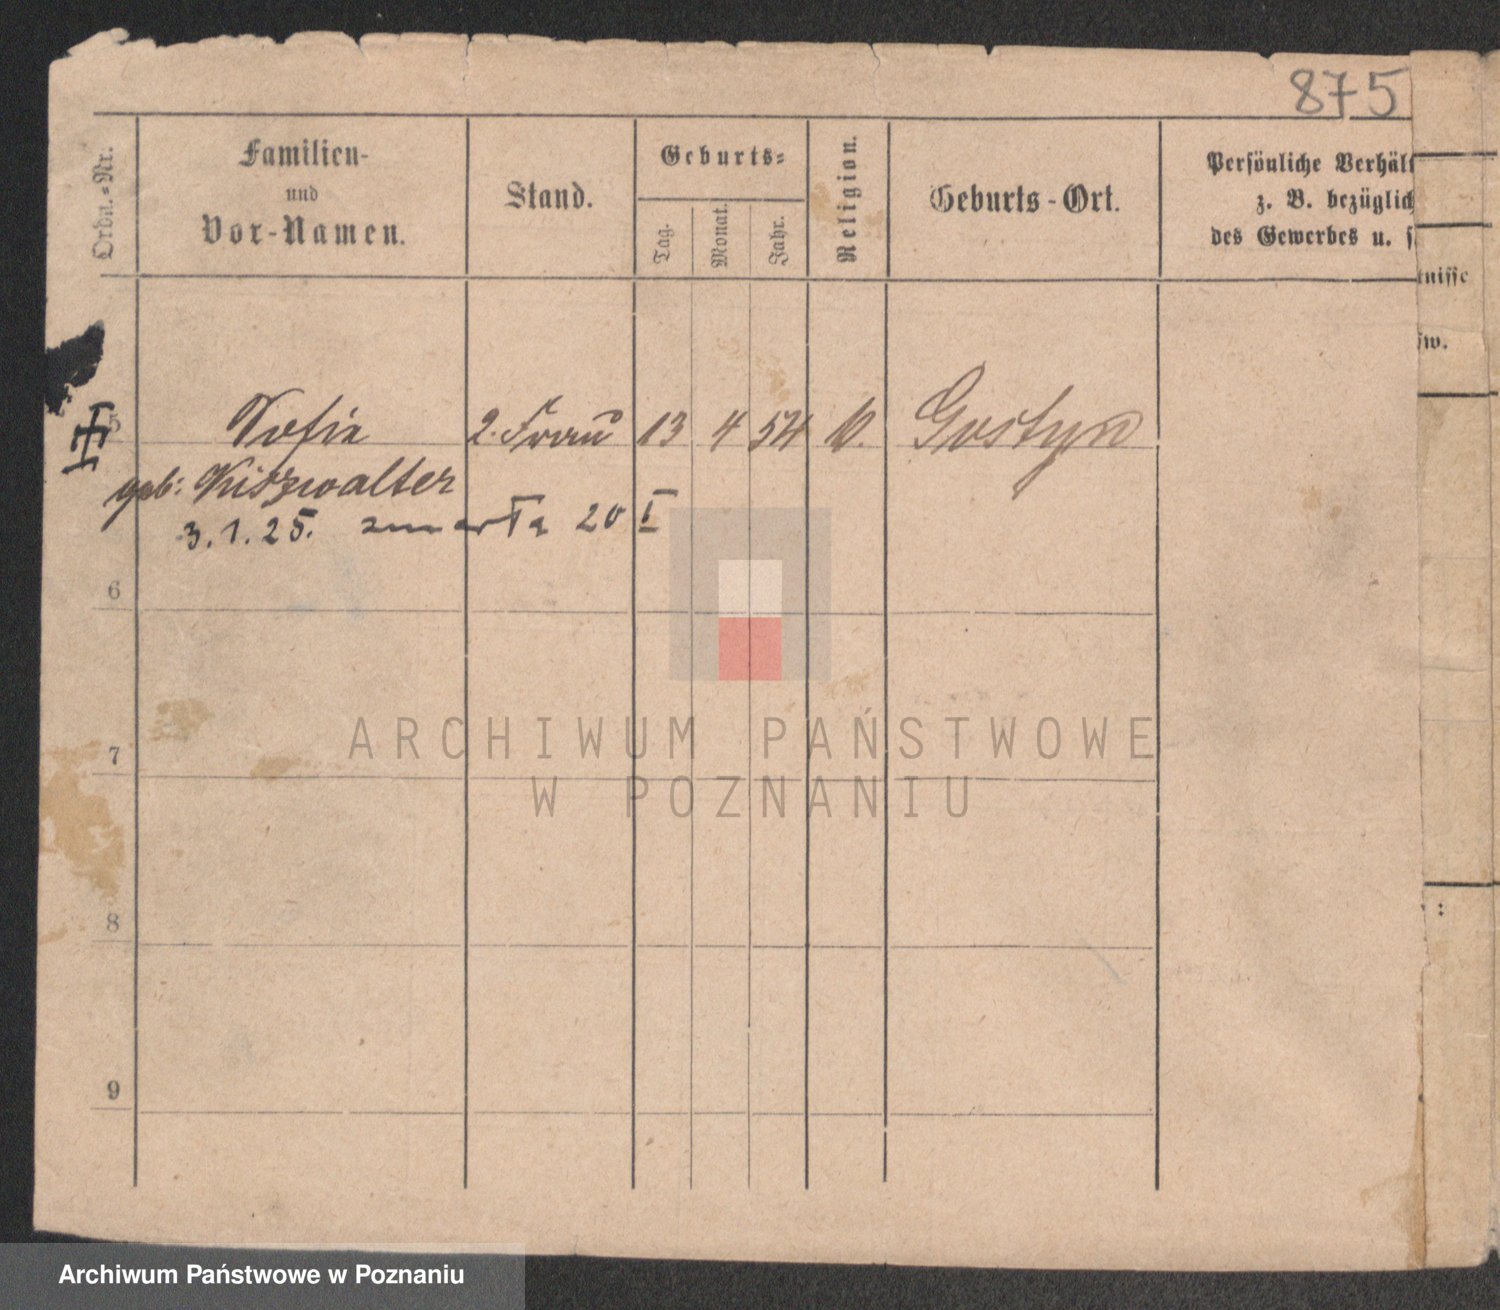 875
Ordn.-Nr.
Familien-
und
Vor-Namen.
Stand.
Geburts-
Tag.
Monat.
Jahr.
Religion.
Geburts-Ort.
Persönliche Verhält
z. B. bezüglich
des Gewerbes u. s
tnisse
sw.
5 Sofie 2. Frau 13 4 54 Gostyn
geb: Kiszwalter
3.1.25. zmarła 20 I
6
7
8
9
:
ARCHIWUM PAŃSTWOWE
W POZNANIU
Archiwum Państwowe w Poznaniu